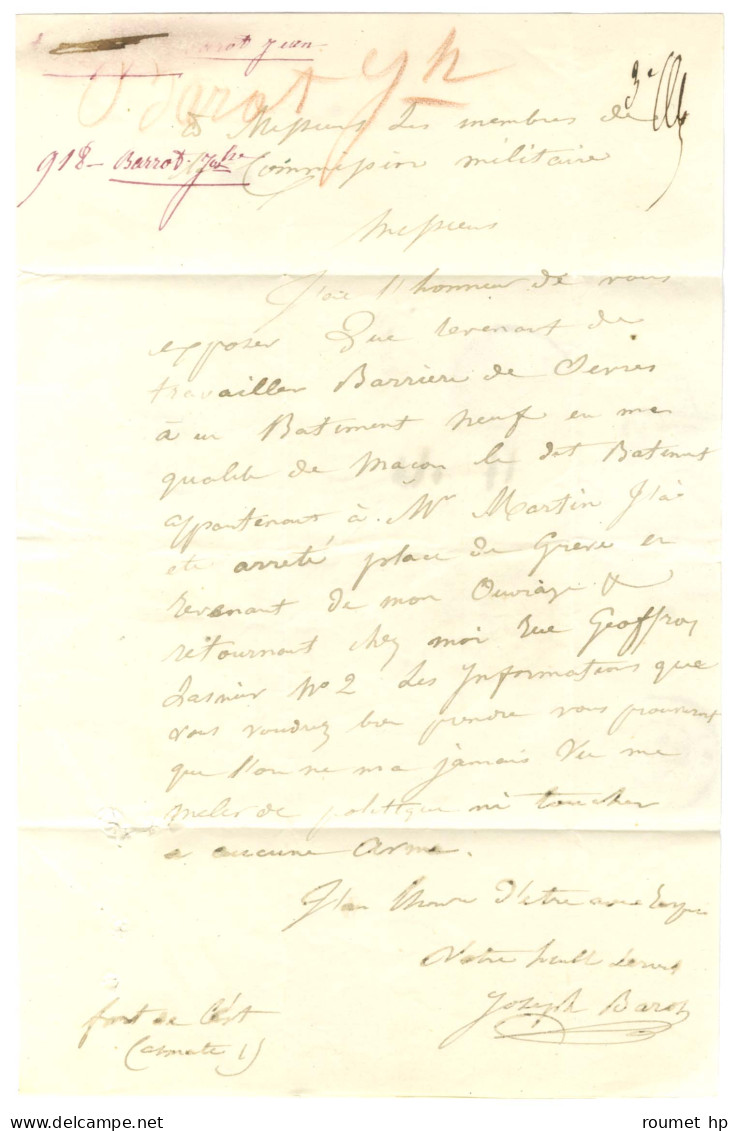 Barot Jean
Barot Jh
A Messieurs Les membres de la
918 - Barrot Commission militaire
Messieurs
J'ai l'honneur de vous
exposer Que revenant de
travailler Barriere de Sevres
à un Batiment neuf en ma
qualité de macon le dit Batiment
appartenant à Mr Martin J'ai
ete arreté place de Greve en
revenant de mon Ouvrage &
retournant chez moi Rue Geoffroy
Lasnier No 2 Les Informations que
vous voudrez bien prendre vous prouveront
que l'on ne ma jamais Vu me
meler de politique ni toucher
a aucune Arme.
J'ai l'honneur d'etre avec
Votre
Joseph Barot
fort de l'Est
(Casmate 1)
roumet hp